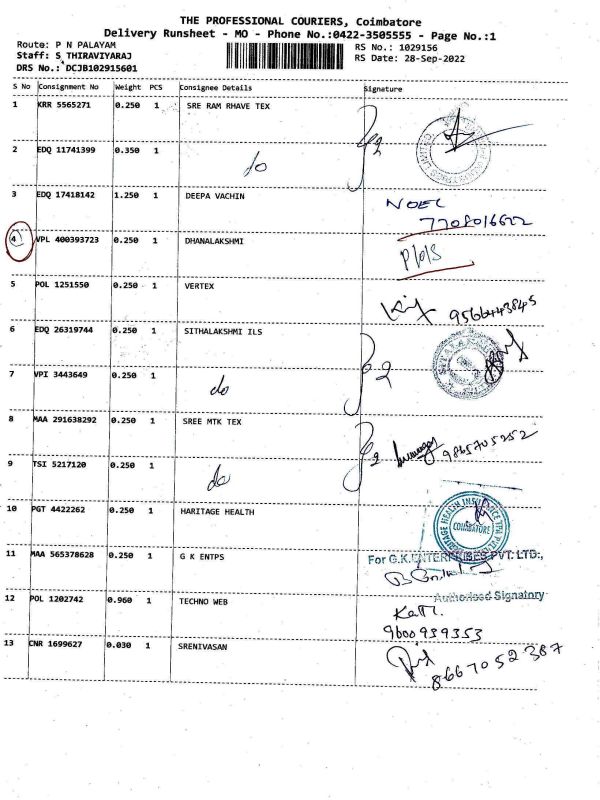 THE PROFESSIONAL COURIERS, Coimbatore
Delivery Runsheet - MO - Phone No.:0422-3505555 - Page No.:1
Route: P N PALAYAM
RS No.: 1029156
Staff: S THIRAVIYARAJ
RS Date: 28-Sep-2022
DRS No.: DCJB102915601
S No Consignment No Weight PCS Consignee Details Signature
1 KRR 5565271 0.250 1 SRE RAM RHAVE TEX
2 EDQ 11741399 0.350 1 do
3 EDQ 17418142 1.250 1 DEEPA VACHIN NOEL
7708016622
4 VPL 400393723 0.250 1 DHANALAKSHMI
5 POL 1251550 0.250 1 VERTEX 9566443845
6 EDQ 26319744 0.250 1 SITHALAKSHMI ILS
7 VPI 3443649 0.250 1 do
8 MAA 291638292 0.250 1 SREE MTK TEX 9865705252
9 TSI 5217120 0.250 1 do
10 PGT 4422262 0.250 1 HARITAGE HEALTH
COIMBATORE
11 MAA 565378628 0.250 1 G K ENTPS For G.K.ENTERPRISES PVT. LTD.,
Authorised Signatory
12 POL 1202742 0.960 1 TECHNO WEB
9600939353
13 CNR 1699627 0.030 1 SRENIVASAN 8667052387